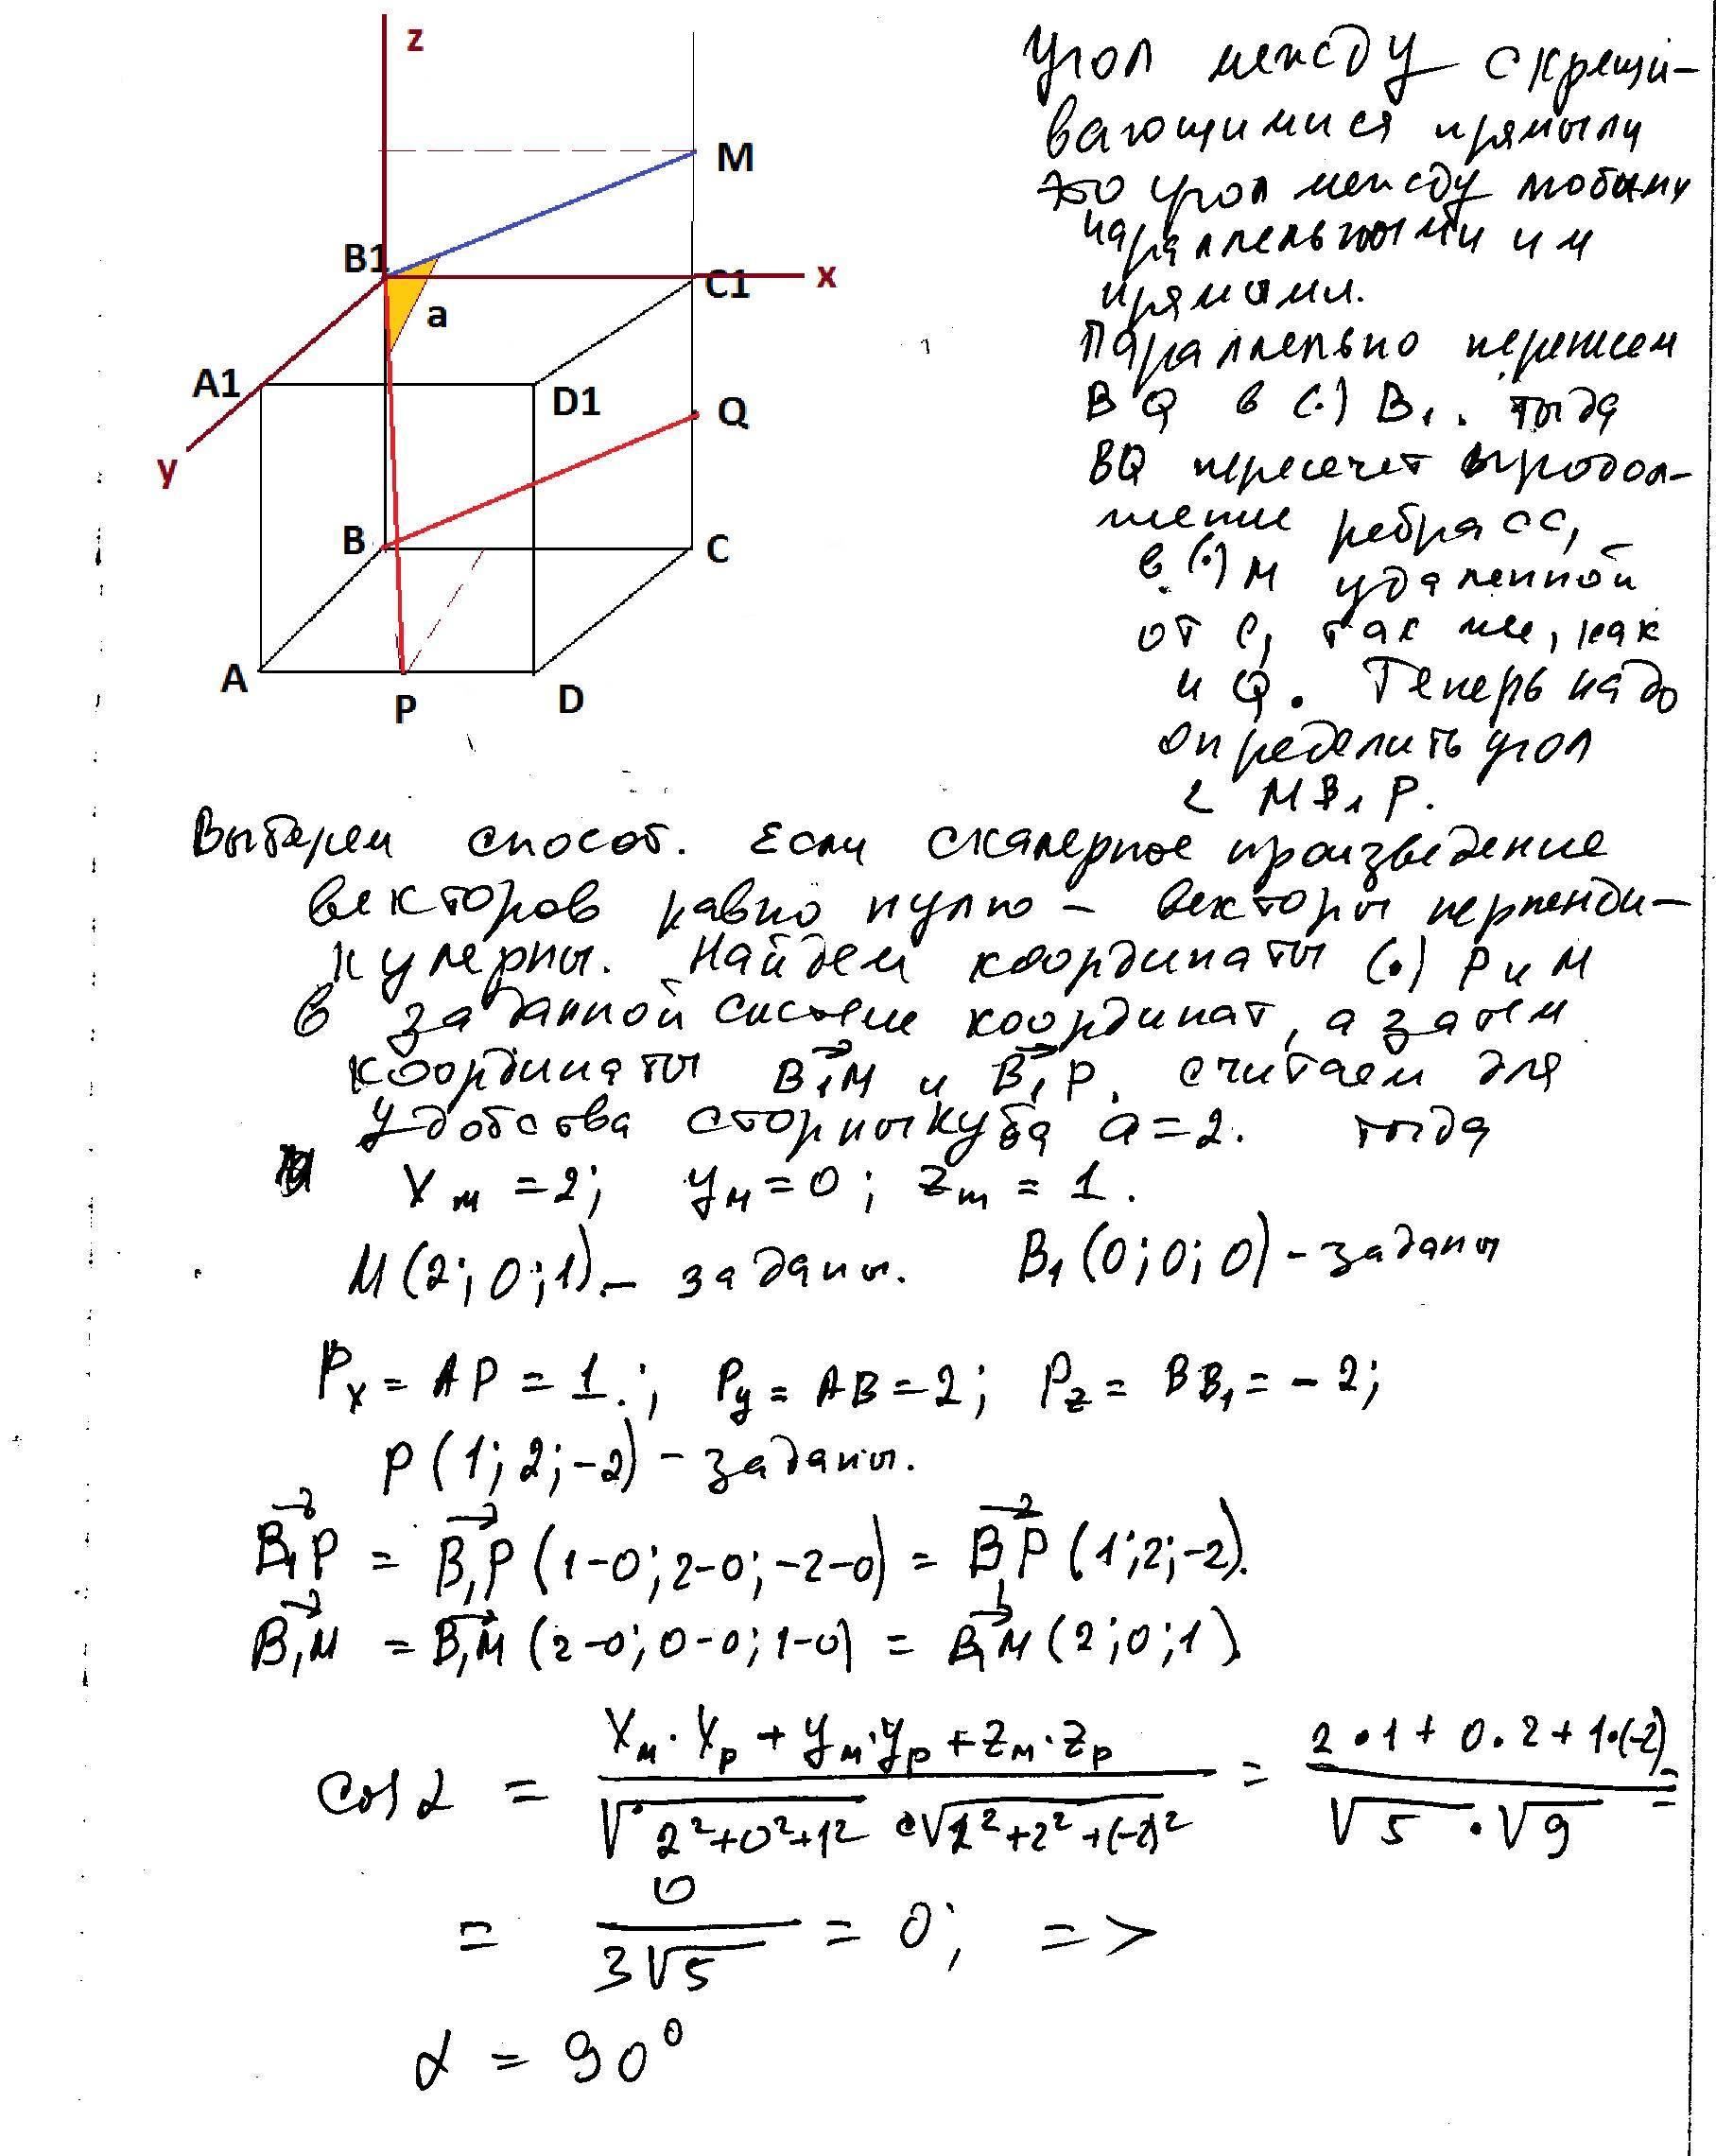 z
M
B1
C1
x
a
A1
D1
Q
y
B
C
A
P
D
Угол между скрещи-
вающимися прямыми
это угол между любыми
параллельными им
прямыми.
Параллельно перенсем
BQ в (.) B₁. тогда
BQ пересечет продол-
жение ребра CC₁
в (.) M удаленной
от C₁ так же, как
и Q. Теперь надо
определить угол
∠ MB₁P.
Выберем способ. Если скалярное произведение
векторов равно нулю – векторы перпенди-
кулярны. Найдем координаты (.) P и M
в заданной системе координат, а затем
координаты B₁M и B₁P. считаем для
удобства стороны куба a=2. тогда
Xм = 2; yм = 0; zm = 1.
M(2; 0; 1). – заданы. B₁(0; 0; 0) – заданы
Px = AP = 1.; Py = AB = 2; Pz = BB₁ = -2;
P(1; 2; -2) – заданы.
B₁P = B₁P (1-0; 2-0; -2-0) = B₁P (1; 2; -2).
B₁M = B₁M (2-0; 0-0; 1-0) = B₁M (2; 0; 1)
cos α = (Xм · Xp + yм · yp + zм · zp) / (√2²+0²+1² · √1²+2²+(-2)²) = (2 · 1 + 0 · 2 + 1·(-2)) / (√5 · √9) =
= 0 / 3√5 = 0; =>
α = 90°